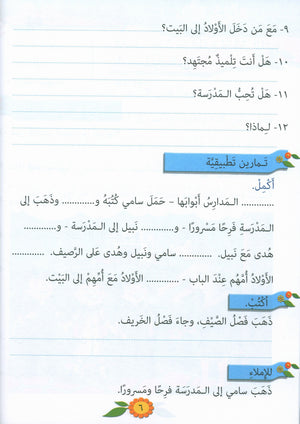 ٩- مَعَ مَن دَخَلَ الأَوْلادُ إلى البَيت؟
١٠- هَلْ أَنتَ تِلْميذٌ مُجتَهِد؟
١١- هَلْ تُحِبُّ الـمَدْرَسة؟
١٢- لِـماذا؟
تَـمارين تَطْبيقِيَّة
أَكْمِلْ.
............ الـمَدارِسُ أَبْوابَها – حَمَلَ سامي كُتُبَهُ و............ وذَهَبَ إلى
الـمَدْرَسةِ فَرِحًا مَسْرورًا - و............ نَبيل إلى الـمَدْرَسة - و............
هُدى مَعَ نَبيل. ............ سامي ونَبيل وهُدى عَلى الرَّصيف. ............
الأَوْلادُ أُمَّهُم عِنْدَ الباب - ............ الأَوْلادُ مَعَ أُمِّهِمْ إلى البَيْت.
أَكْتُبْ.
ذَهَبَ فَصْلُ الصَّيْفِ، وجاءَ فَصْلُ الخَريف.
للإملاء
ذَهَبَ سامي إلى الـمَدرَسة فَرِحًا ومَسرورًا.
٦